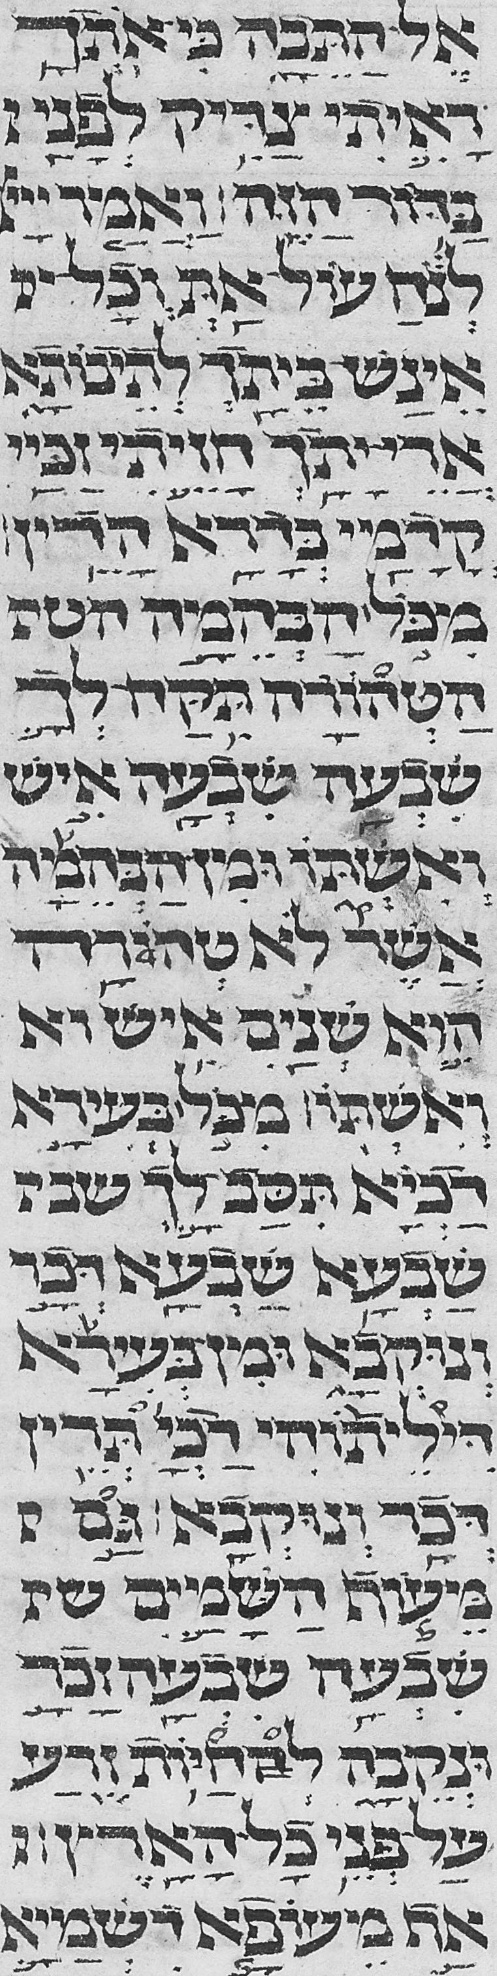 אל התבה כי אתך
ראיתי צדיק לפני
בדור הזה׃ ואמר ייי
לנח עול את וכל
אינש ביתך לתיבותא
ארי יתך חזיתי זכיי
קדמיי בדרא הדין׃
מכל הבהמה
הטהורה תקח לך
שבעה שבעה איש
ואשתו ומן הבהמה
אשר לא טהורה
הוא שנים איש וא
ואשתו׃ מכל בעירא
דכיא תסב לך שב
שבעא שבעא דכר
ונוקבא ומן בעירא
דיליתוהי דכי תרין
דכר ונוקבא׃ גם
מעוף השמים
שבעה שבעה זכר
ונקבה לחיות זרע
על פני כל הארץ׃
אף מעופא דשמיא